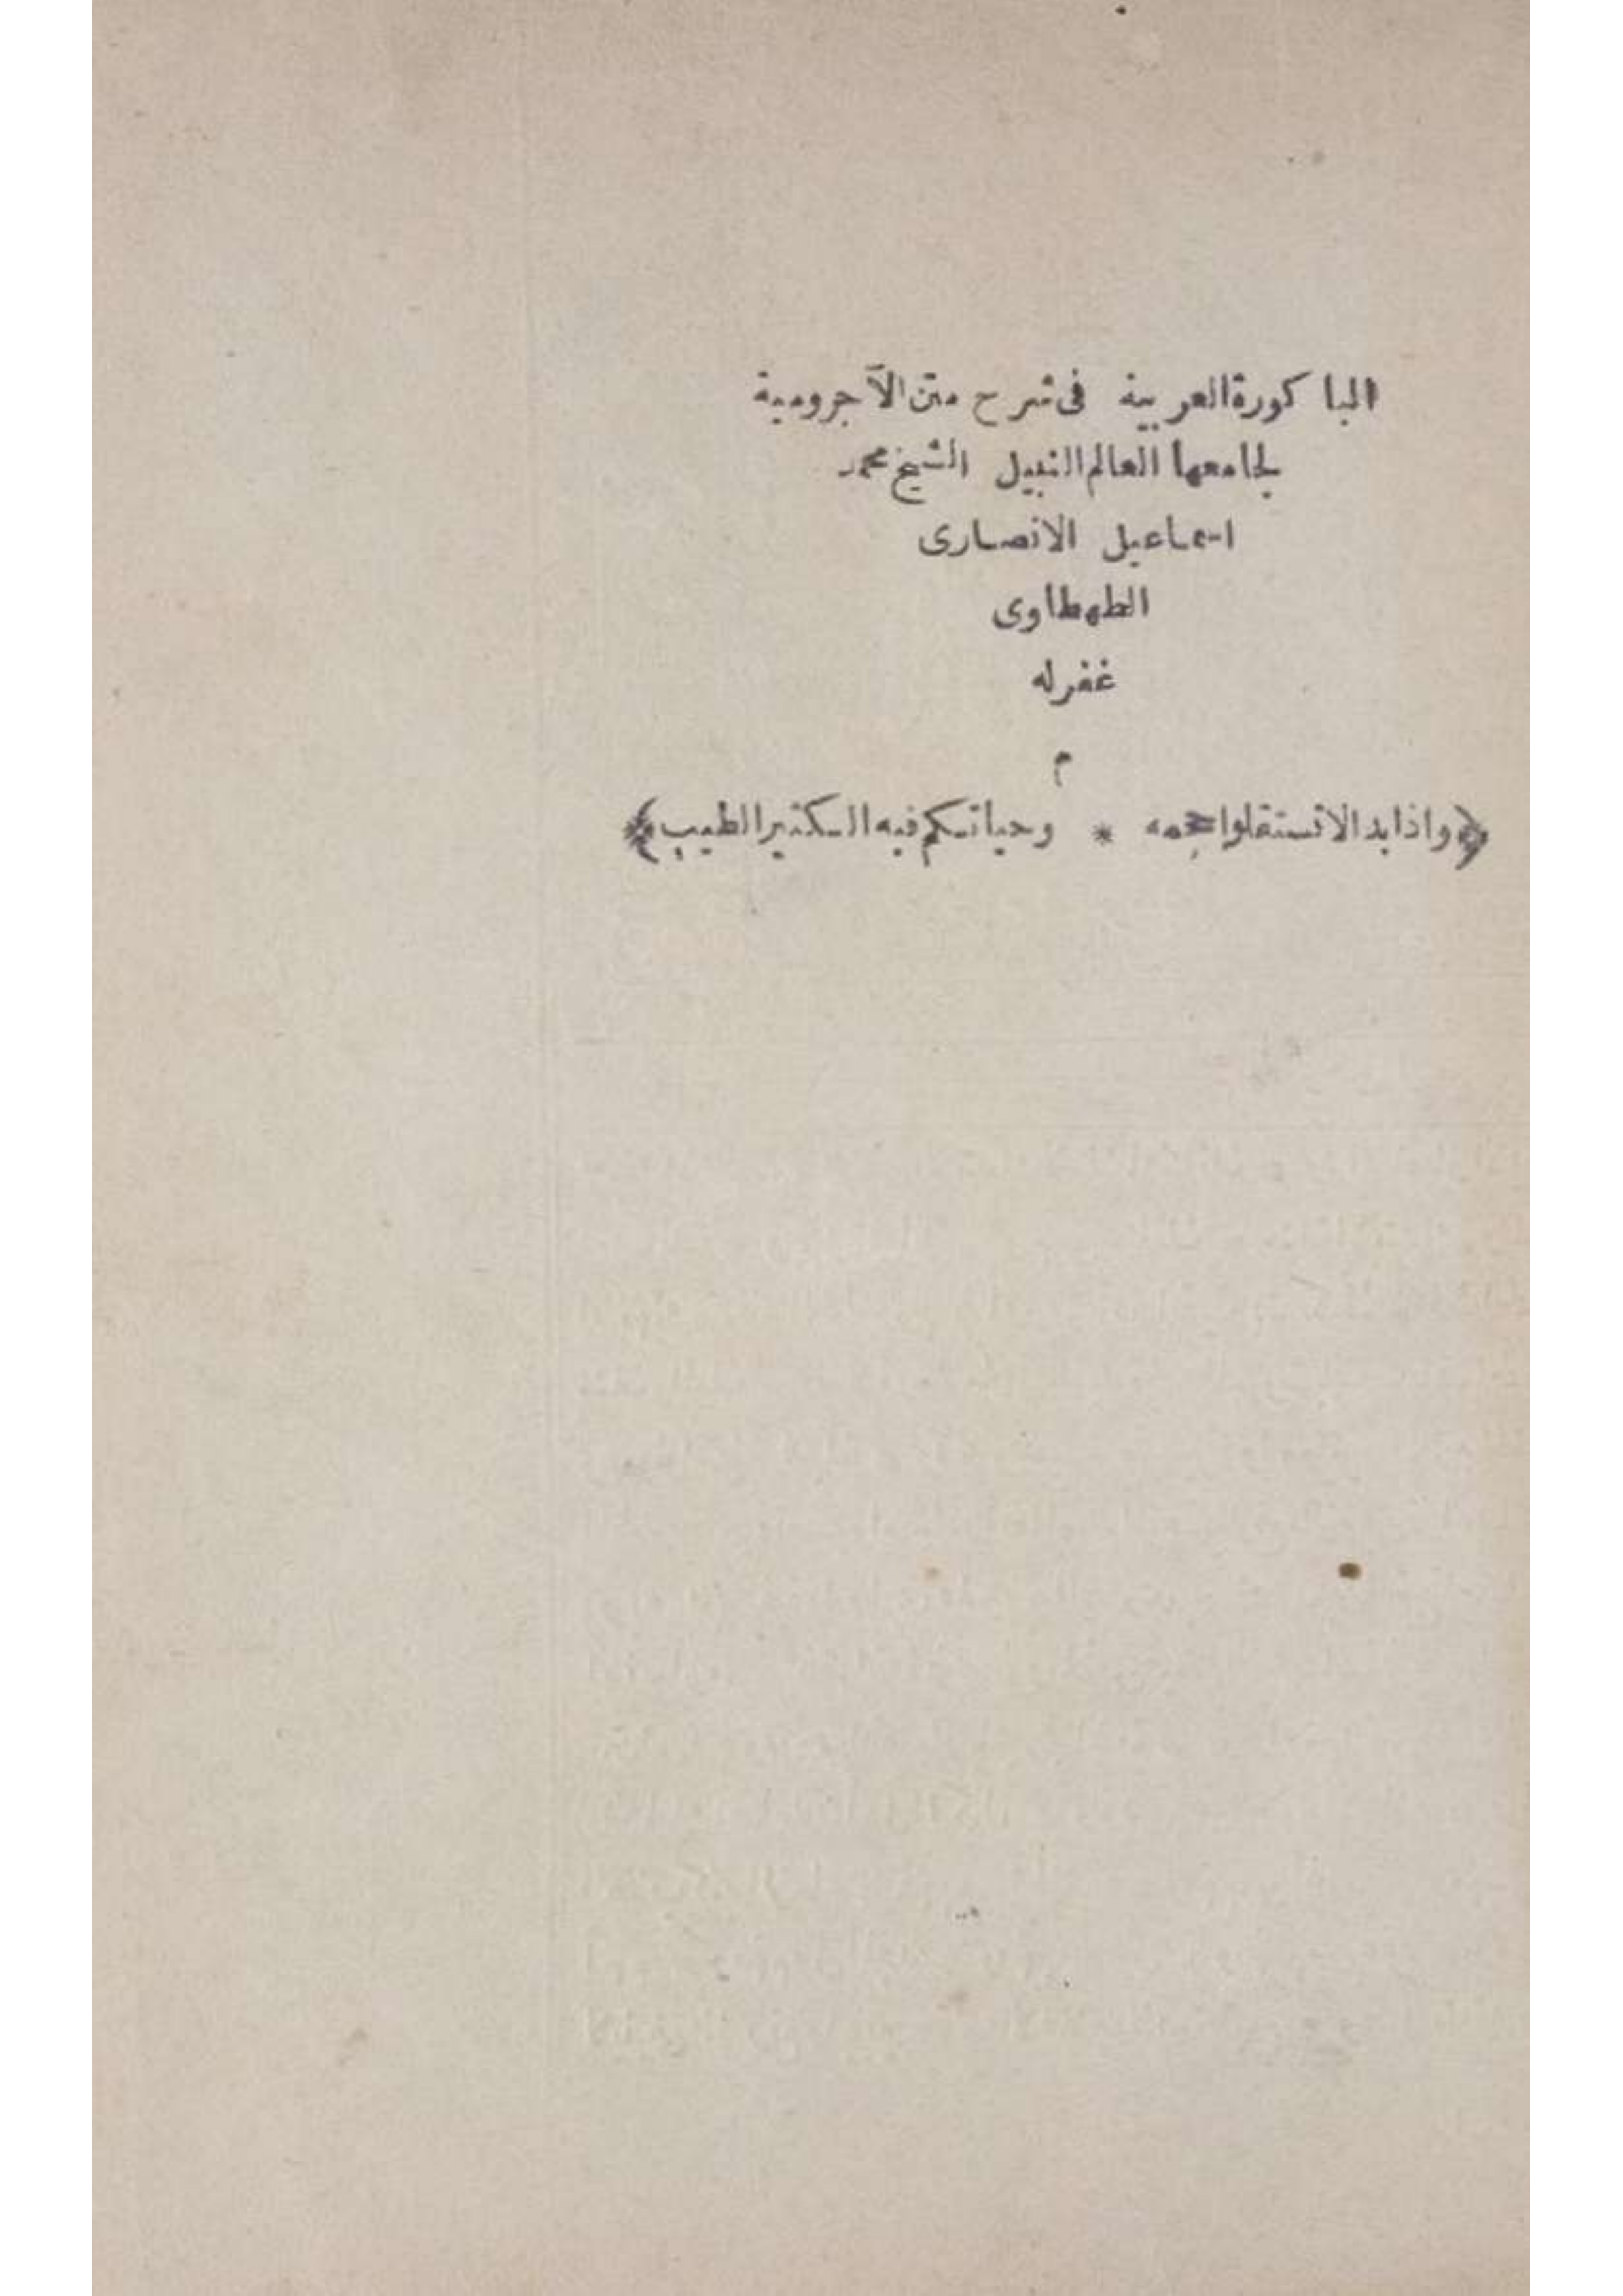 الباكورة العربية فى شرح متن الآجرومية
لجامعها العالم النبيل الشيخ محمد
اسماعيل الانصارى
الطهطاوى
غفرله
م
﴿واذا بدا لاتستقلوا حجمه * وحياتكم فيه الكثير الطيب﴾